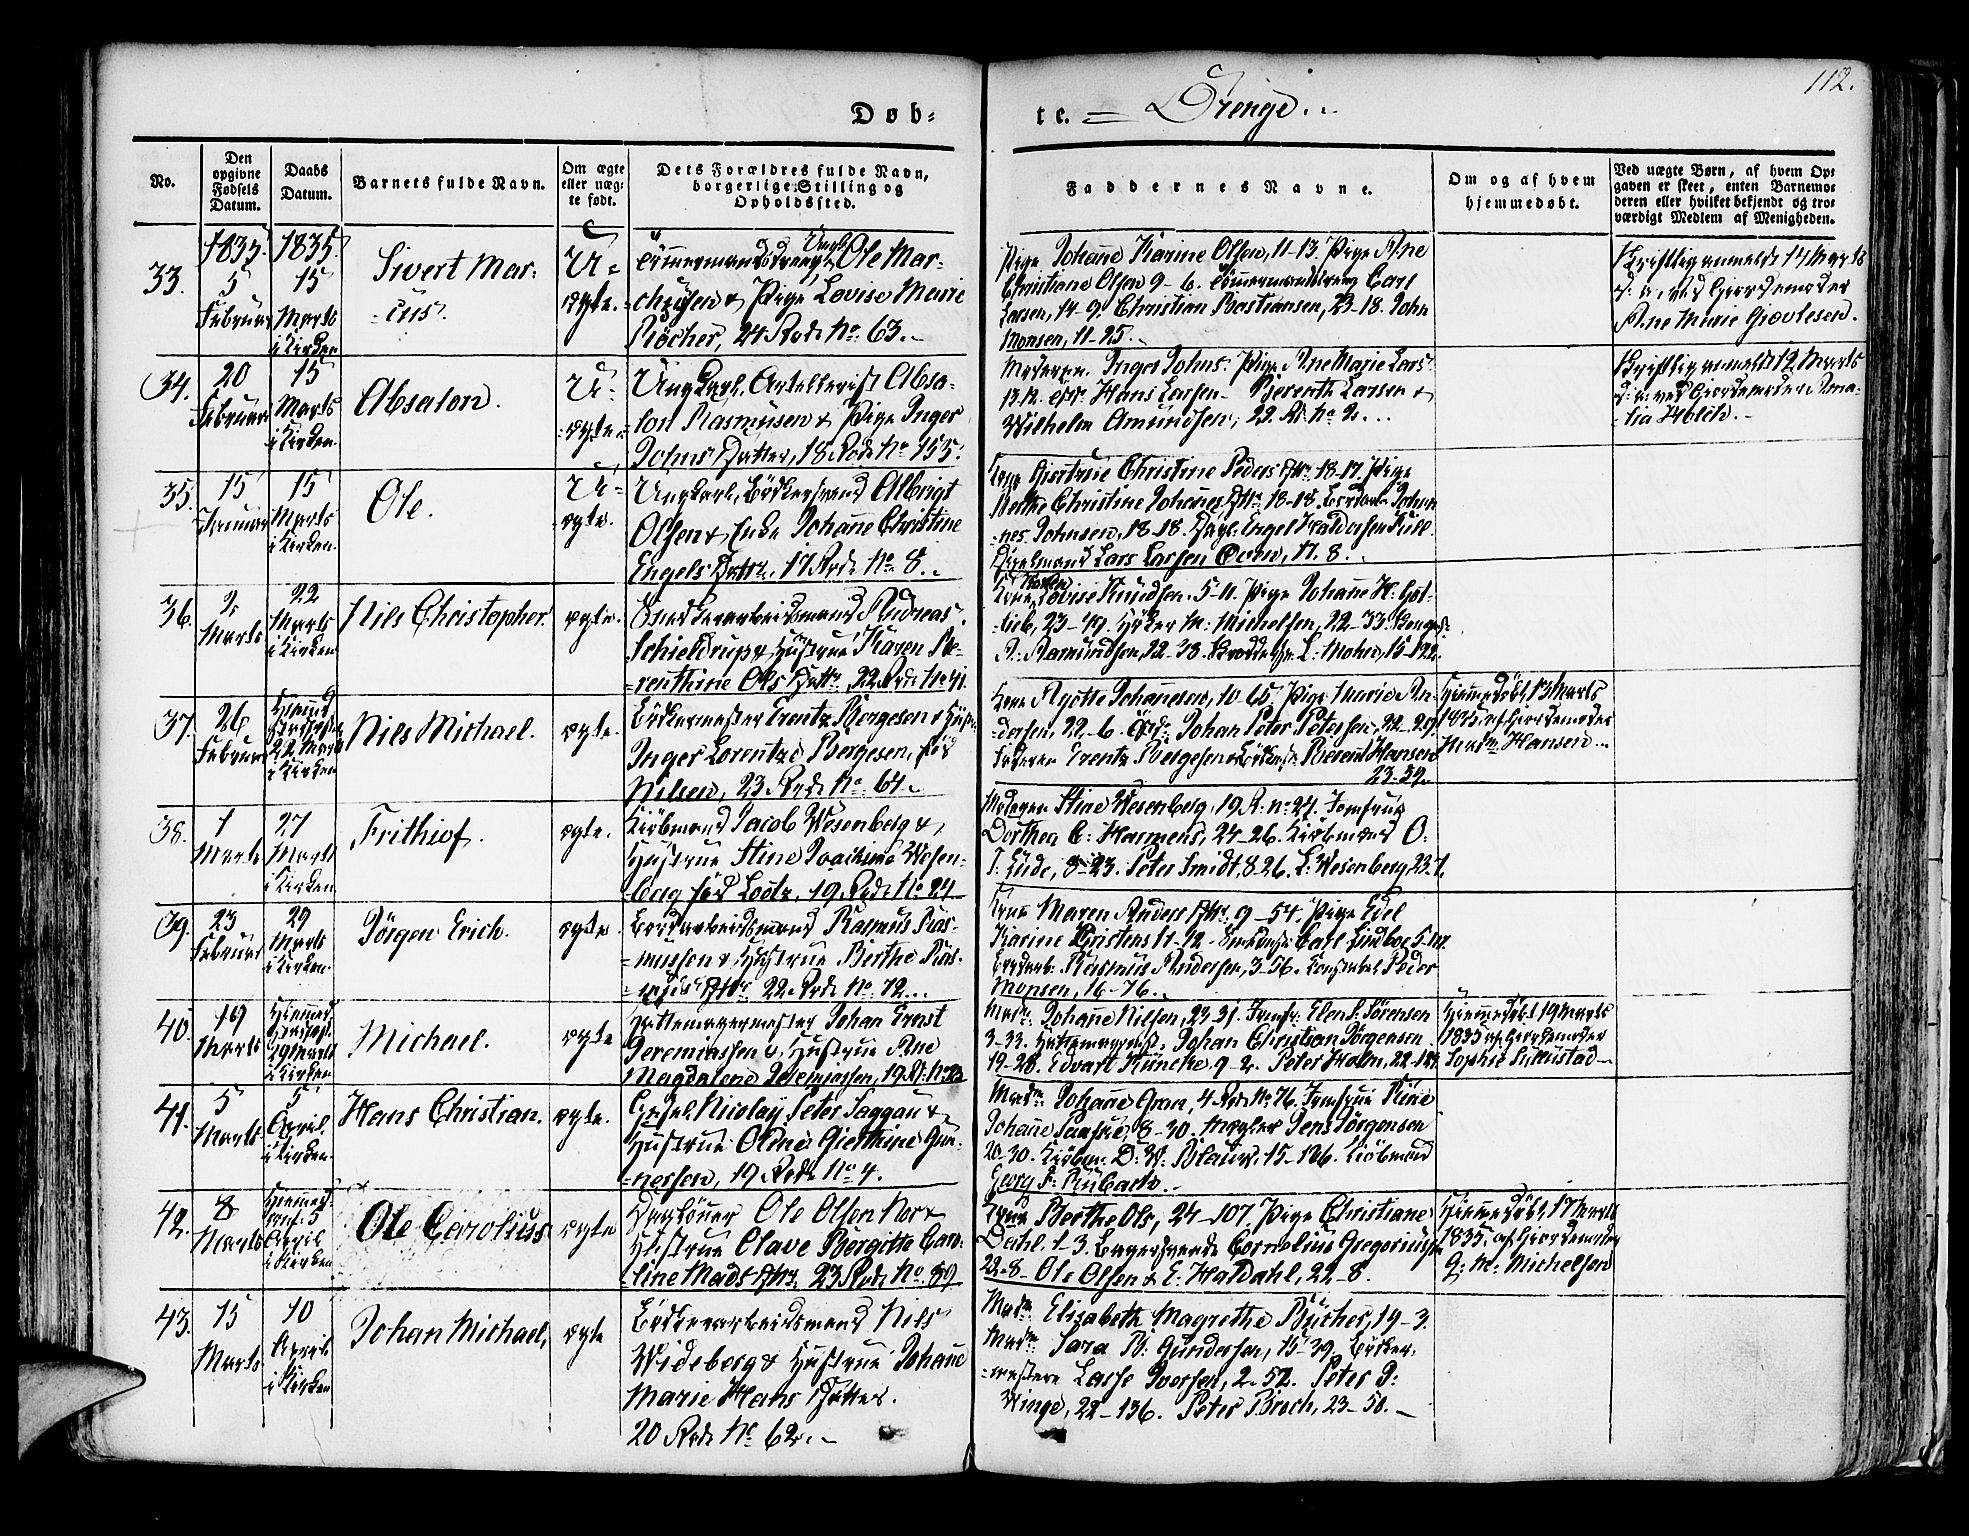 112.
Døb- te. = Drenge.
No.
Den opgivne Fødsels Datum.
Daabs Datum.
Barnets fulde Navn.
Om ægte eller uægte født.
Dets Forældres fulde Navn, borgerlige Stilling og Opholdssted.
Faddernes Navne.
Om og af hvem hjemmedøbt.
Ved uægte Børn, af hvem Opgaven er skeet, enten Barnemoderen eller hvilket bekjendt og troværdigt Medlem af Menigheden.
33.
1835.
5
Februar
1835.
15
Marts
i Kirken
Sivert Mar-
-cus.
U-
-ægte.
Ungk.
Tømmermandsdreng Ole Mar-
-chussen & Pige Lovise Marie
Röcher, 24 Rode No. 63.
Pige Johanne Karine Olsen, 11-13. Pige Ane
Christiane Olsen 9-6. Tømmermandsdreng Carl
Larsen, 14-9. Christian Bastiansen, 23-18. John
Monsen, 11-25.
Skriftlig anmeldt 14 Marts
d: a: ved Gjordemoder
Ane Marie Grovlesen.
34.
20
Februar
15
Marts
i Kirken.
Absalon.
U-
-ægte.
Ungkarl, Artellerist Absa-
lon Rasmusen & Pige Inger
Johns Datter, 18 Rode No 155.
Moderen Inger Johns. Pige Ane Marie Lars
Hans Larsen Berenth Larsen &
Wilhelm Amundsen, 22. R. No 2.
Skriftlig anmeldt 12 Marts
d: a: ved Gjordemoder Ama-
-lia Holch.
35.
15
Januar
15
Marts
i Kirken.
Ole.
U-
ægte.
Ungkarl, Bødkersvend Albrigt
Olsen & Enke Johanne Christine
Engels Dattr. 17 Rode No 8.
Kone Giertrue Christine Peders Dtr. 18-17. Pige
Berthe Christine Johannes Dtr. 18-18. Johan-
-nes Johnsen, 18-18. Engel Haldorsen
Lars Larsen Oven, 17. 8.
36.
2
Marts
22
Marts
i Kirken
Nils Christopher.
ægte.
Snedkerarbeidsmand Andreas
Schieldrup & Hustrue Karen Be-
-renthine Ols Dattr. 22 Rode No 41.
Kone Lovise Knudsen. 5-11. Pige Johanne H. Got-
-lieb, 23-47. Høker M: Michelsen, 22-33.
A: Amundsen, 22-38. L: Mohn, 15-122.
37.
26
Februar
Hjemmed
22 Marts
i Kirken
Nils Michael.
ægte.
Bødkermester Erentz Børgesen & Hustru
Inger Lorentze Børgesen, fød
Nilsen, 23 Rode No. 64.
Kone Agotte Johannesen, 10-65 Pige Marie An-
dersen, 22-6. Johan Peter Petersen, 22-29.
Faderen Erentz Børgesen & Berent Hansen
23-52.
Hjemmedøbt 13 Marts
1835, af Gjordemoder
Madm Hansen.
38.
1
Marts
27
Marts
i Kirken
Frithiof.
ægte.
Kiöbmand Jacob Wesenberg &
Hustrue Stine Joachima Wesen-
-berg fød Lootz, 19 Rode No 24
Moderen Stine Wesenberg, 19 R. No 24. Jomfrue
Dorthea C: Harmens, 24-26. Kiöbmænd O:
T: Eide, 8-23. Peter Smidt, 8-26. L: Wesenberg, 23-7.
39.
23
Februar
29
Marts
i Kirken
Jörgen Erich.
ægte.
Bødkerarbeidsmand Rasmus Ras-
-mussen & Hustrue Berthe Ras-
-mus Dtr 22 Rode No. 72.
Kone Maren Anders Dtr. 9-54. Pige Edel
Karine Christens 11-12. Carl Lindboe 5-
Rasmus Andersen, 3-56. Peder
Monsen, 16-76.
40.
19
Marts
Hjemmed
29 Marts
i Kirken
Michael.
ægte
Hattemagermester Johan Ernst
Jeremiassen & Hustrue Ane
Magdalene Jeremiassen, 19 R. No
Madm. Johanne Nilsen, 23-31. Jomfr. Elen S. Sörensen
3-33. Johan Christian Jörgensen
19-28. Edvart Küncke, 9-2. Peter Holm, 22-
Hjemmedøbt 19 Marts
1835 af Gjordemoder
Sophie
41.
5
Marts
5
April
i Kirken.
Hans Christian.
ægte.
Nicolay Peter Saggau &
Hustrue Oline Gierthine Gun-
-nersen, 19 Rode No 4.
Madm. Johanne Gran, 4 Rode No 76. Jomfrue Rine
Johanne 8-30. Megler Jens Jörgensen
20-30. Kiöbm. D: W: Blauw, 15-126. Kiöbmand
Georg F: Rubach.
42.
8
Marts
Hjemmed.
5
April
i Kirken
Ole Carolius
ægte
Dagløner Ole Olsen Nor &
Hustrue Olave Bergitte Caro-
-line Mads Dtr. 23 Rode No 89
Kone Berthe Ols, 24-107. Pige Christiane
1-3. Bagersvende Cornelius Gregoriussen
22-8. Ole Olsen & E: Haldahl, 22-8.
Hjemmedøbt 17 Marts
1835, af Gjordemoder
G: M: Michelsen
43.
15
Marts
10
April
i Kirken
Johan Michael,
ægte
Bødkerarbeidsmand Nils
Wideberg & Hustrue Johanne
Marie Hans Datter.
20 Rode No 62.
Madm Elizabeth Magrethe Bücher, 19-3.
Madm. Sara B: Gundersen, 15-39. Bødker-
-mestere Lasse Iversen, 2-52. Peter J:
Winge, 22-136. Peter Broch, 23-50.